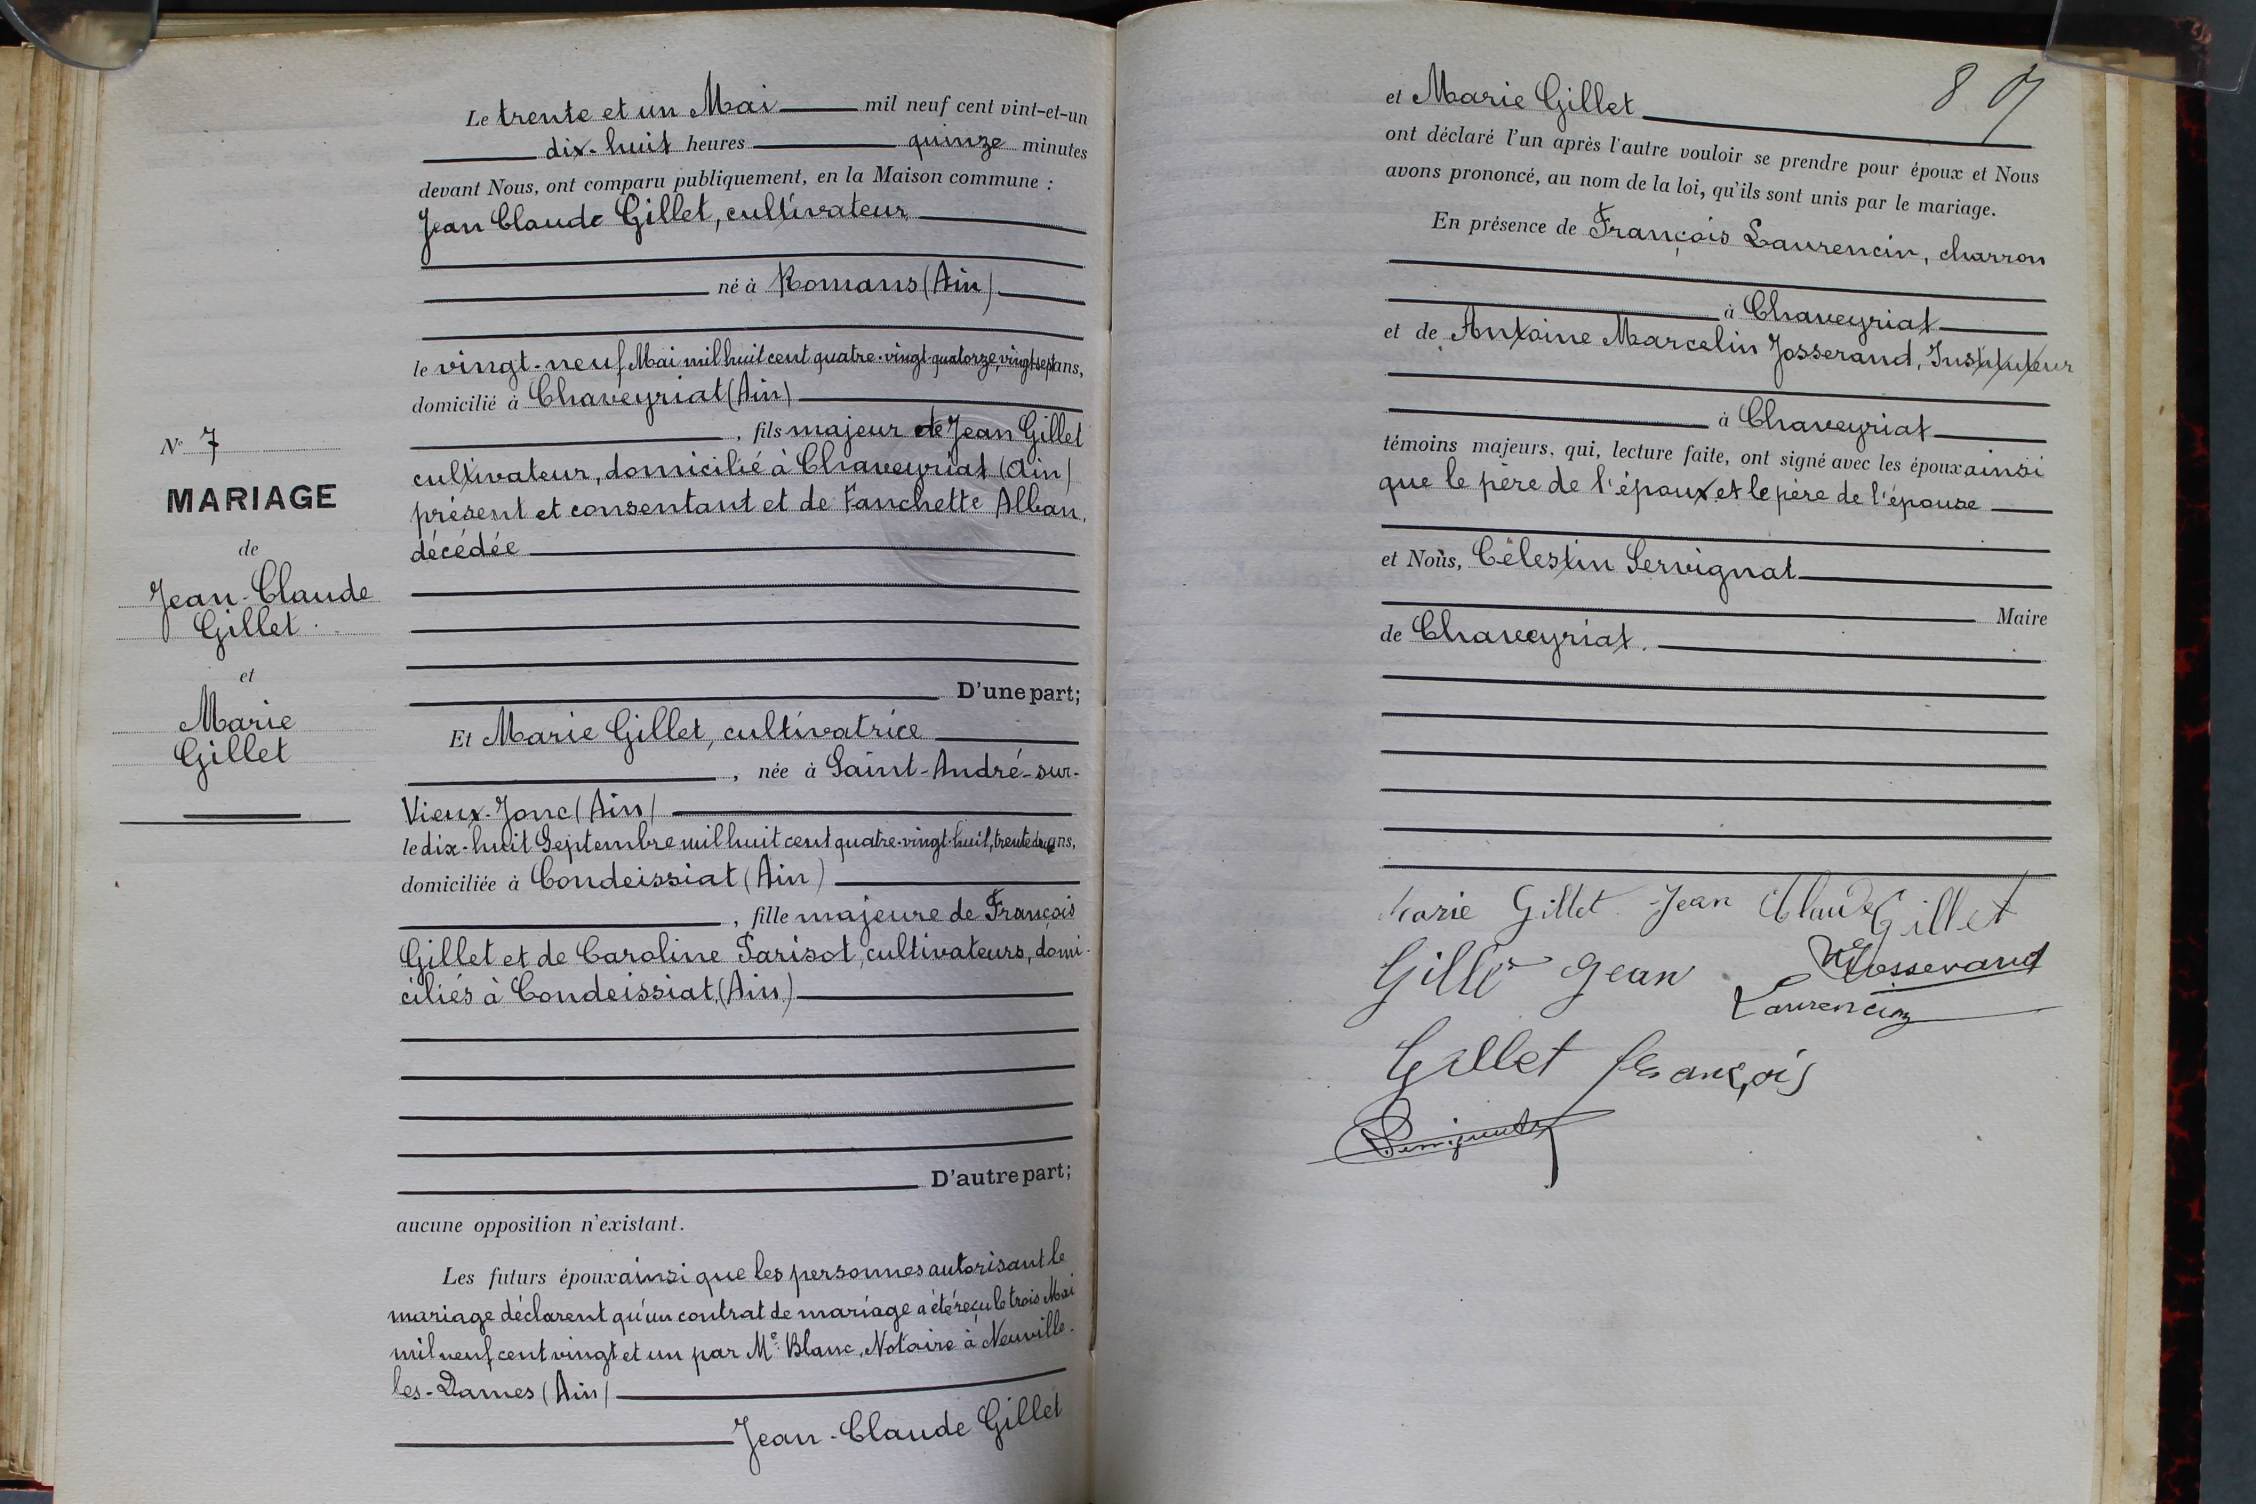 Le trente et un Mai mil neuf cent vint-et-un
dix-huit heures quinze minutes
devant Nous, ont comparu publiquement, en la Maison commune :
Jean Claude Gillet, cultivateur
né à Romans (Ain)
le vingt-neuf Mai mil huit cent quatre-vingt-quatorze, vingt-sept ans,
domicilié à Chaveyriat (Ain)
, fils majeur de Jean Gillet
cultivateur, domicilié à Chaveyriat (Ain)
présent et consentant et de Fanchette Alban,
décédée
D'une part;
N° 7
MARIAGE
de
Jean-Claude
Gillet
et
Marie
Gillet
Et Marie Gillet, cultivatrice
, née à Saint-André-sur-
Vieux-Jonc (Ain)
le dix-huit Septembre mil huit cent quatre-vingt-huit, trente deux ans,
domiciliée à Condeissiat (Ain)
, fille majeure de François
Gillet et de Caroline Parisot, cultivateurs, domi-
ciliés à Condeissiat, (Ain)
D'autre part;
aucune opposition n'existant.
Les futurs époux ainsi que les personnes autorisant le
mariage déclarent qu'un contrat de mariage a été reçu le trois Mai
mil neuf cent vingt et un par Me Blanc, Notaire à Neuville-
les-Dames (Ain)
Jean-Claude Gillet
8
et Marie Gillet
ont déclaré l'un après l'autre vouloir se prendre pour époux et Nous
avons prononcé, au nom de la loi, qu'ils sont unis par le mariage.
En présence de François Laurencin, charron
à Chaveyriat
et de Antoine Marcelin Josserand, Instituteur
à Chaveyriat
témoins majeurs, qui, lecture faite, ont signé avec les époux ainsi
que le père de l'époux et le père de l'épouse
et Nous, Célestin Servignat
Maire
de Chaveyriat.
Marie Gillet Jean Claude Gillet
Gillet Jean Josserand
Laurencin
Gillet françois